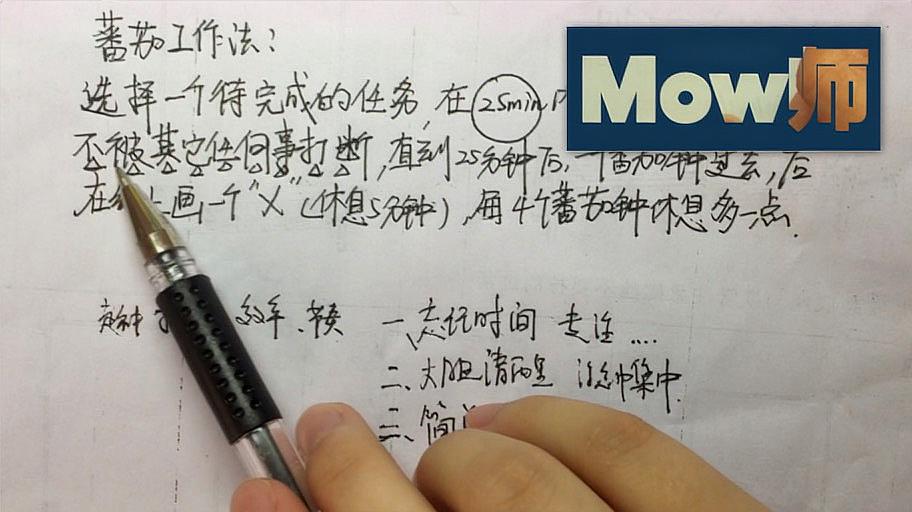 蕃茄工作法：
选择一个待完成的任务,在25min
Mow师
不被其它任何事打断,直到25分钟后,一个番茄钟过去,后
在 画一个"X"(休息5分钟),每4个蕃茄钟休息多一点.
效率、
一、忘记时间 专注....
二、大脑清醒 注意力集中.
三、简